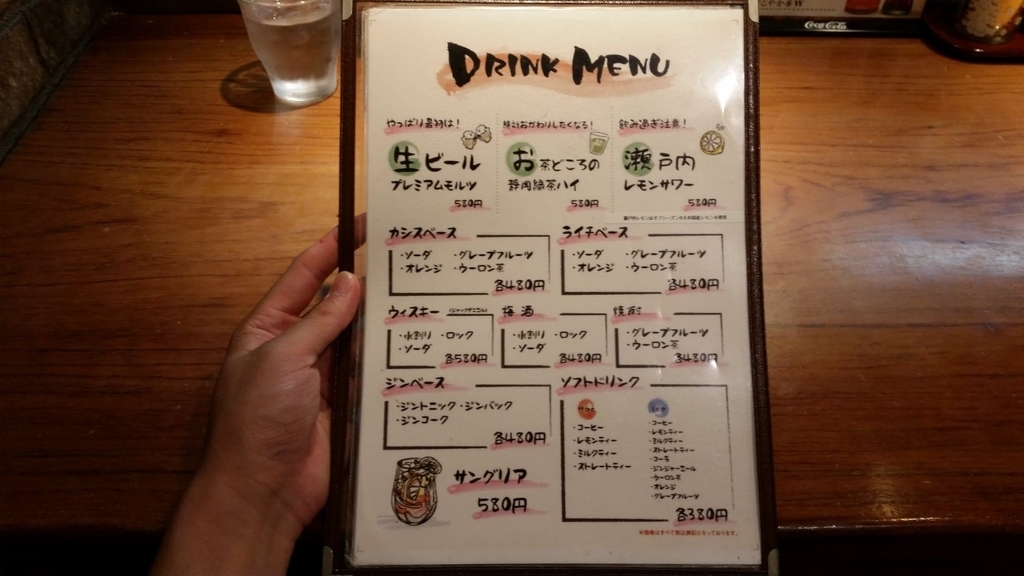 Coca-Cola
DRINK MENU
やっぱり最初は！
生ビール
プレミアムモルツ
580円
絶対おかわりしたくなる！
お茶どころの
静岡緑茶ハイ
580円
飲み過ぎ注意！
瀬戸内
レモンサワー
580円
カシスベース
・ソーダ ・グレープフルーツ
・オレンジ ・ウーロン茶
各480円
ライチベース
・ソーダ ・グレープフルーツ
・オレンジ ・ウーロン茶
各480円
ウィスキー (ジャックダニエル)
・水割り ・ロック
・ソーダ
各580円
梅酒
・水割り ・ロック
・ソーダ
各480円
焼酎
・グレープフルーツ
・ウーロン茶
各480円
ジンベース
・ジントニック ・ジンバック
・ジンコーク
各480円
サングリア
580円
ソフトドリンク
Hot
・コーヒー
・レモンティー
・ミルクティー
・ストレートティー
Ice
・コーヒー
・レモンティー
・ミルクティー
・ストレートティー
・コーラ
・ジンジャーエール
・ウーロン茶
・オレンジ
・グレープフルーツ
各380円
※価格はすべて税込表記となっております。